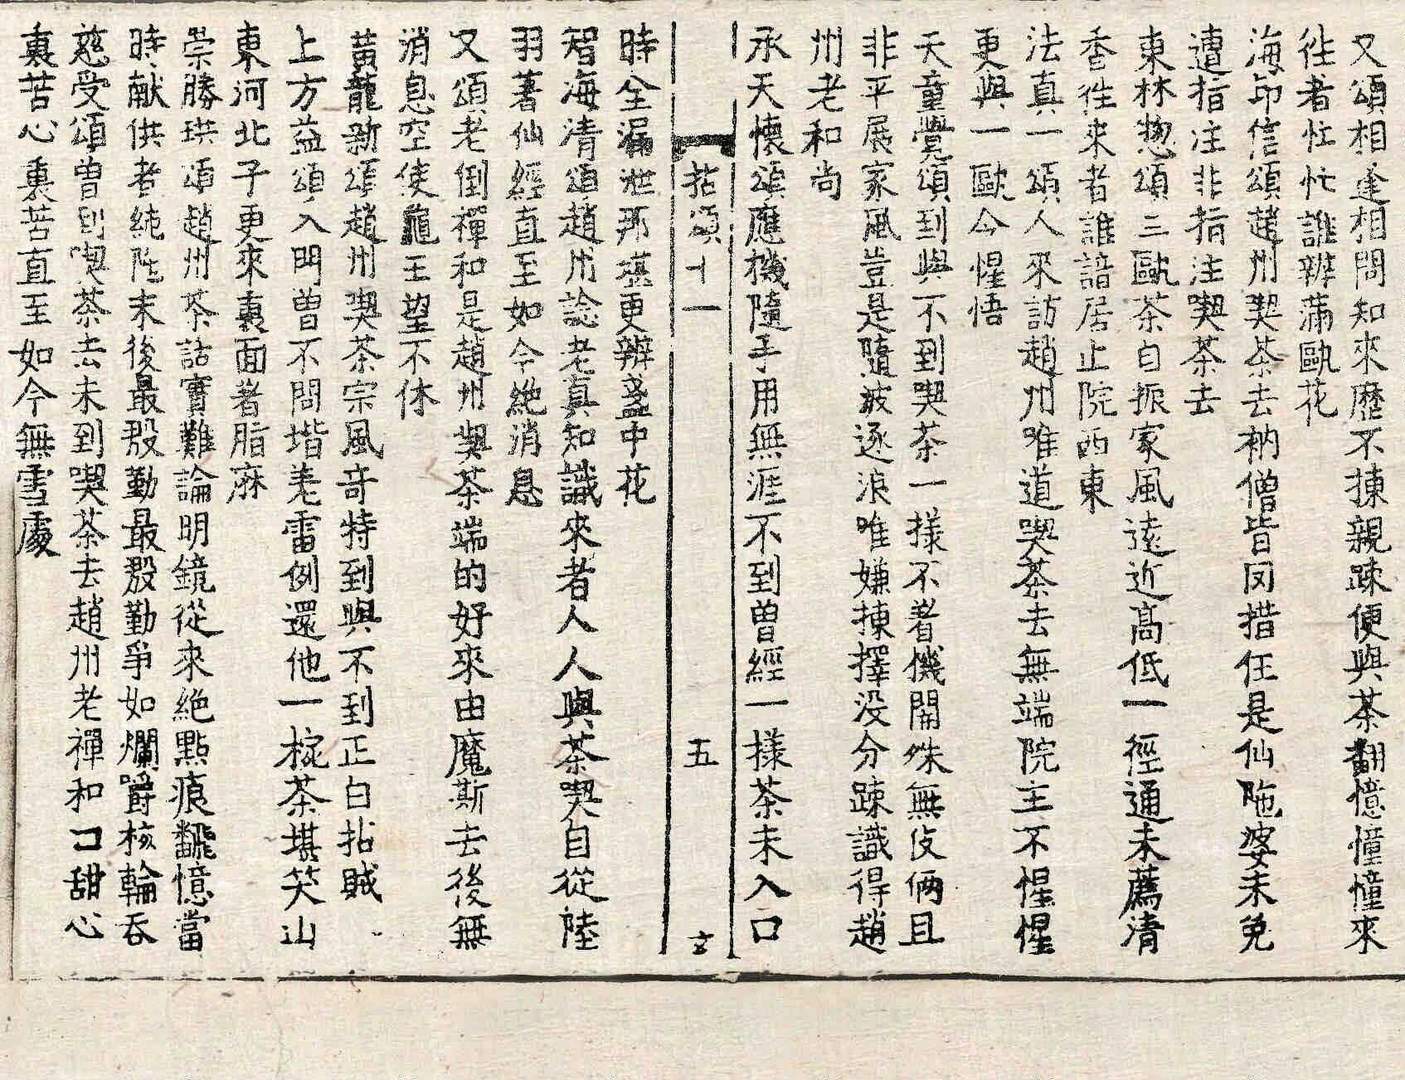 又頌相逢相問知來歷不揀親疎便與茶翻憶憧憧來
徃者忙忙誰辨滿甌花
海印信頌趙州喫茶去衲僧皆罔措任是仙陁婆未免
遭指注非指注喫茶去
東林惣頌三甌茶自振家風遠近高低一徑通未薦清
香徃來者誰諳居止院西東
法真一頌人來訪趙州唯道喫茶去無端院主不惺惺
更與一甌今惺悟
天童覺頌到與不到喫茶一樣不著機開殊無伎倆且
非平展家風豈是隨波逐浪唯嫌揀擇没分疎識得趙
州老和尚
承天懷頌應機隨手用無涯不到曾經一樣茶未入口
拈頌十一 五 玄
時全漏泄那堪更辨盞中花
智海清頌趙州諗老真知識來者人人與茶喫自從陸
羽著仙經直至如今絶消息
又頌老倒禪和是趙州喫茶端的好來由魔斯去後無
消息空使龍王望不休
黃龍新頌趙州喫茶宗風奇特到與不到正白拈賊
上方益頌入門曾不問堦差雷例還他一椀茶堪笑山
東河北子更來裏面著脂麻
崇勝珙頌趙州茶話實難論明鏡從來絶點痕飜憶當
時献供者純陁末後最殷勤最殷勤爭如爛嚼核輪吞
慈受頌曾到喫茶去未到喫茶去趙州老禪和口甜心
裏苦心裏苦直至如今無雪處